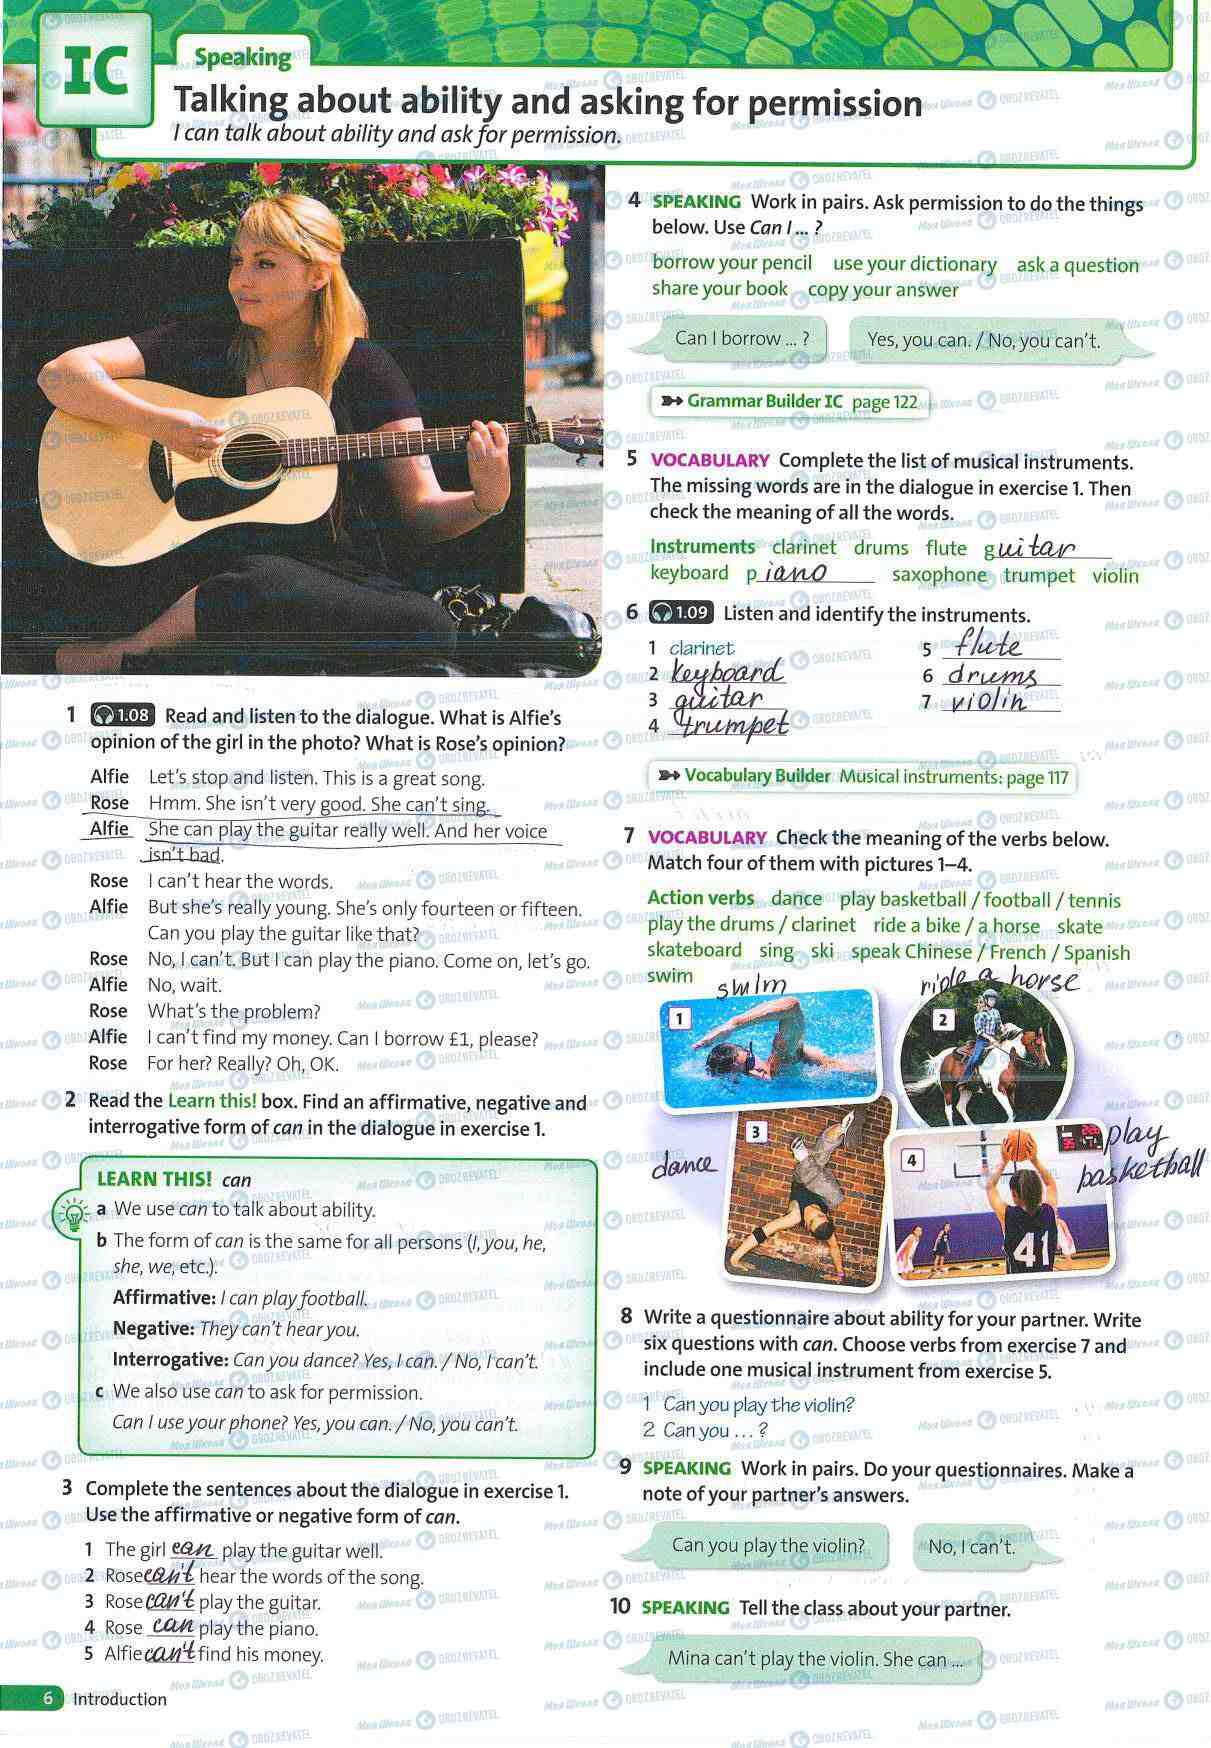 IC
Speaking
Talking about ability and asking for permission
I can talk about ability and ask for permission.
1 1.08 Read and listen to the dialogue. What is Alfie's
opinion of the girl in the photo? What is Rose's opinion?
Alfie Let's stop and listen. This is a great song.
Rose Hmm. She isn't very good. She can't sing.
Alfie She can play the guitar really well. And her voice
isn't bad.
Rose I can't hear the words.
Alfie But she's really young. She's only fourteen or fifteen.
Can you play the guitar like that?
Rose No, I can't. But I can play the piano. Come on, let's go.
Alfie No, wait.
Rose What's the problem?
Alfie I can't find my money. Can I borrow £1, please?
Rose For her? Really? Oh, OK.
2 Read the Learn this! box. Find an affirmative, negative and
interrogative form of can in the dialogue in exercise 1.
LEARN THIS! can
a We use can to talk about ability.
b The form of can is the same for all persons (I, you, he,
she, we, etc.).
Affirmative: I can play football.
Negative: They can't hear you.
Interrogative: Can you dance? Yes, I can. / No, I can't.
c We also use can to ask for permission.
Can I use your phone? Yes, you can. / No, you can't.
3 Complete the sentences about the dialogue in exercise 1.
Use the affirmative or negative form of can.
1 The girl can play the guitar well.
2 Rose can't hear the words of the song.
3 Rose can't play the guitar.
4 Rose can play the piano.
5 Alfie can't find his money.
6 Introduction
4 SPEAKING Work in pairs. Ask permission to do the things
below. Use Can I ... ?
borrow your pencil use your dictionary ask a question
share your book copy your answer
Can I borrow ... ? Yes, you can. / No, you can't.
Grammar Builder IC page 122
5 VOCABULARY Complete the list of musical instruments.
The missing words are in the dialogue in exercise 1. Then
check the meaning of all the words.
Instruments clarinet drums flute guitar
keyboard piano saxophone trumpet violin
6 1.09 Listen and identify the instruments.
1 clarinet
2 keyboard
3 guitar
4 trumpet
5 flute
6 drums
7 violin
Vocabulary Builder Musical instruments: page 117
7 VOCABULARY Check the meaning of the verbs below.
Match four of them with pictures 1–4.
Action verbs dance play basketball / football / tennis
play the drums / clarinet ride a bike / a horse skate
skateboard sing ski speak Chinese / French / Spanish
swim
swim
ride a horse
1
2
3
dance
4
play
basketball
41
8 Write a questionnaire about ability for your partner. Write
six questions with can. Choose verbs from exercise 7 and
include one musical instrument from exercise 5.
1 Can you play the violin?
2 Can you ... ?
9 SPEAKING Work in pairs. Do your questionnaires. Make a
note of your partner's answers.
Can you play the violin? No, I can't.
10 SPEAKING Tell the class about your partner.
Mina can't play the violin. She can ...
Моя Школа OBOZREVATEL